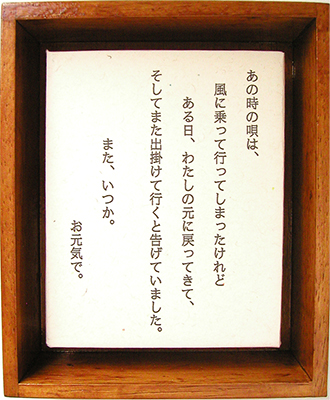 あの時の唄は、
風に乗って行ってしまったけれど
ある日、わたしの元に戻ってきて、
そしてまた出掛けて行くと告げていました。
また、いつか。
お元気で。